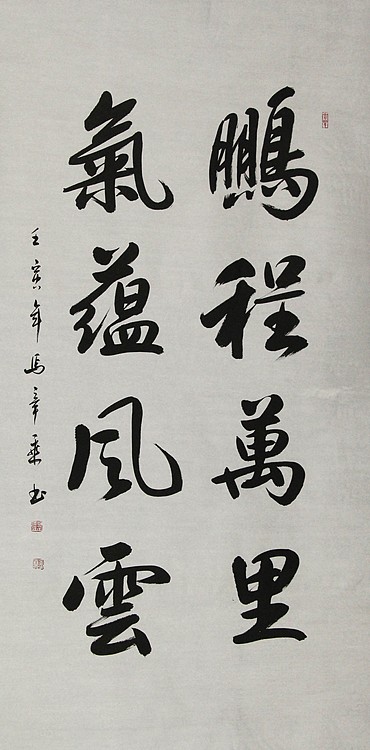 鵬程萬里
氣蕴風雲
壬寅年馬章乘书